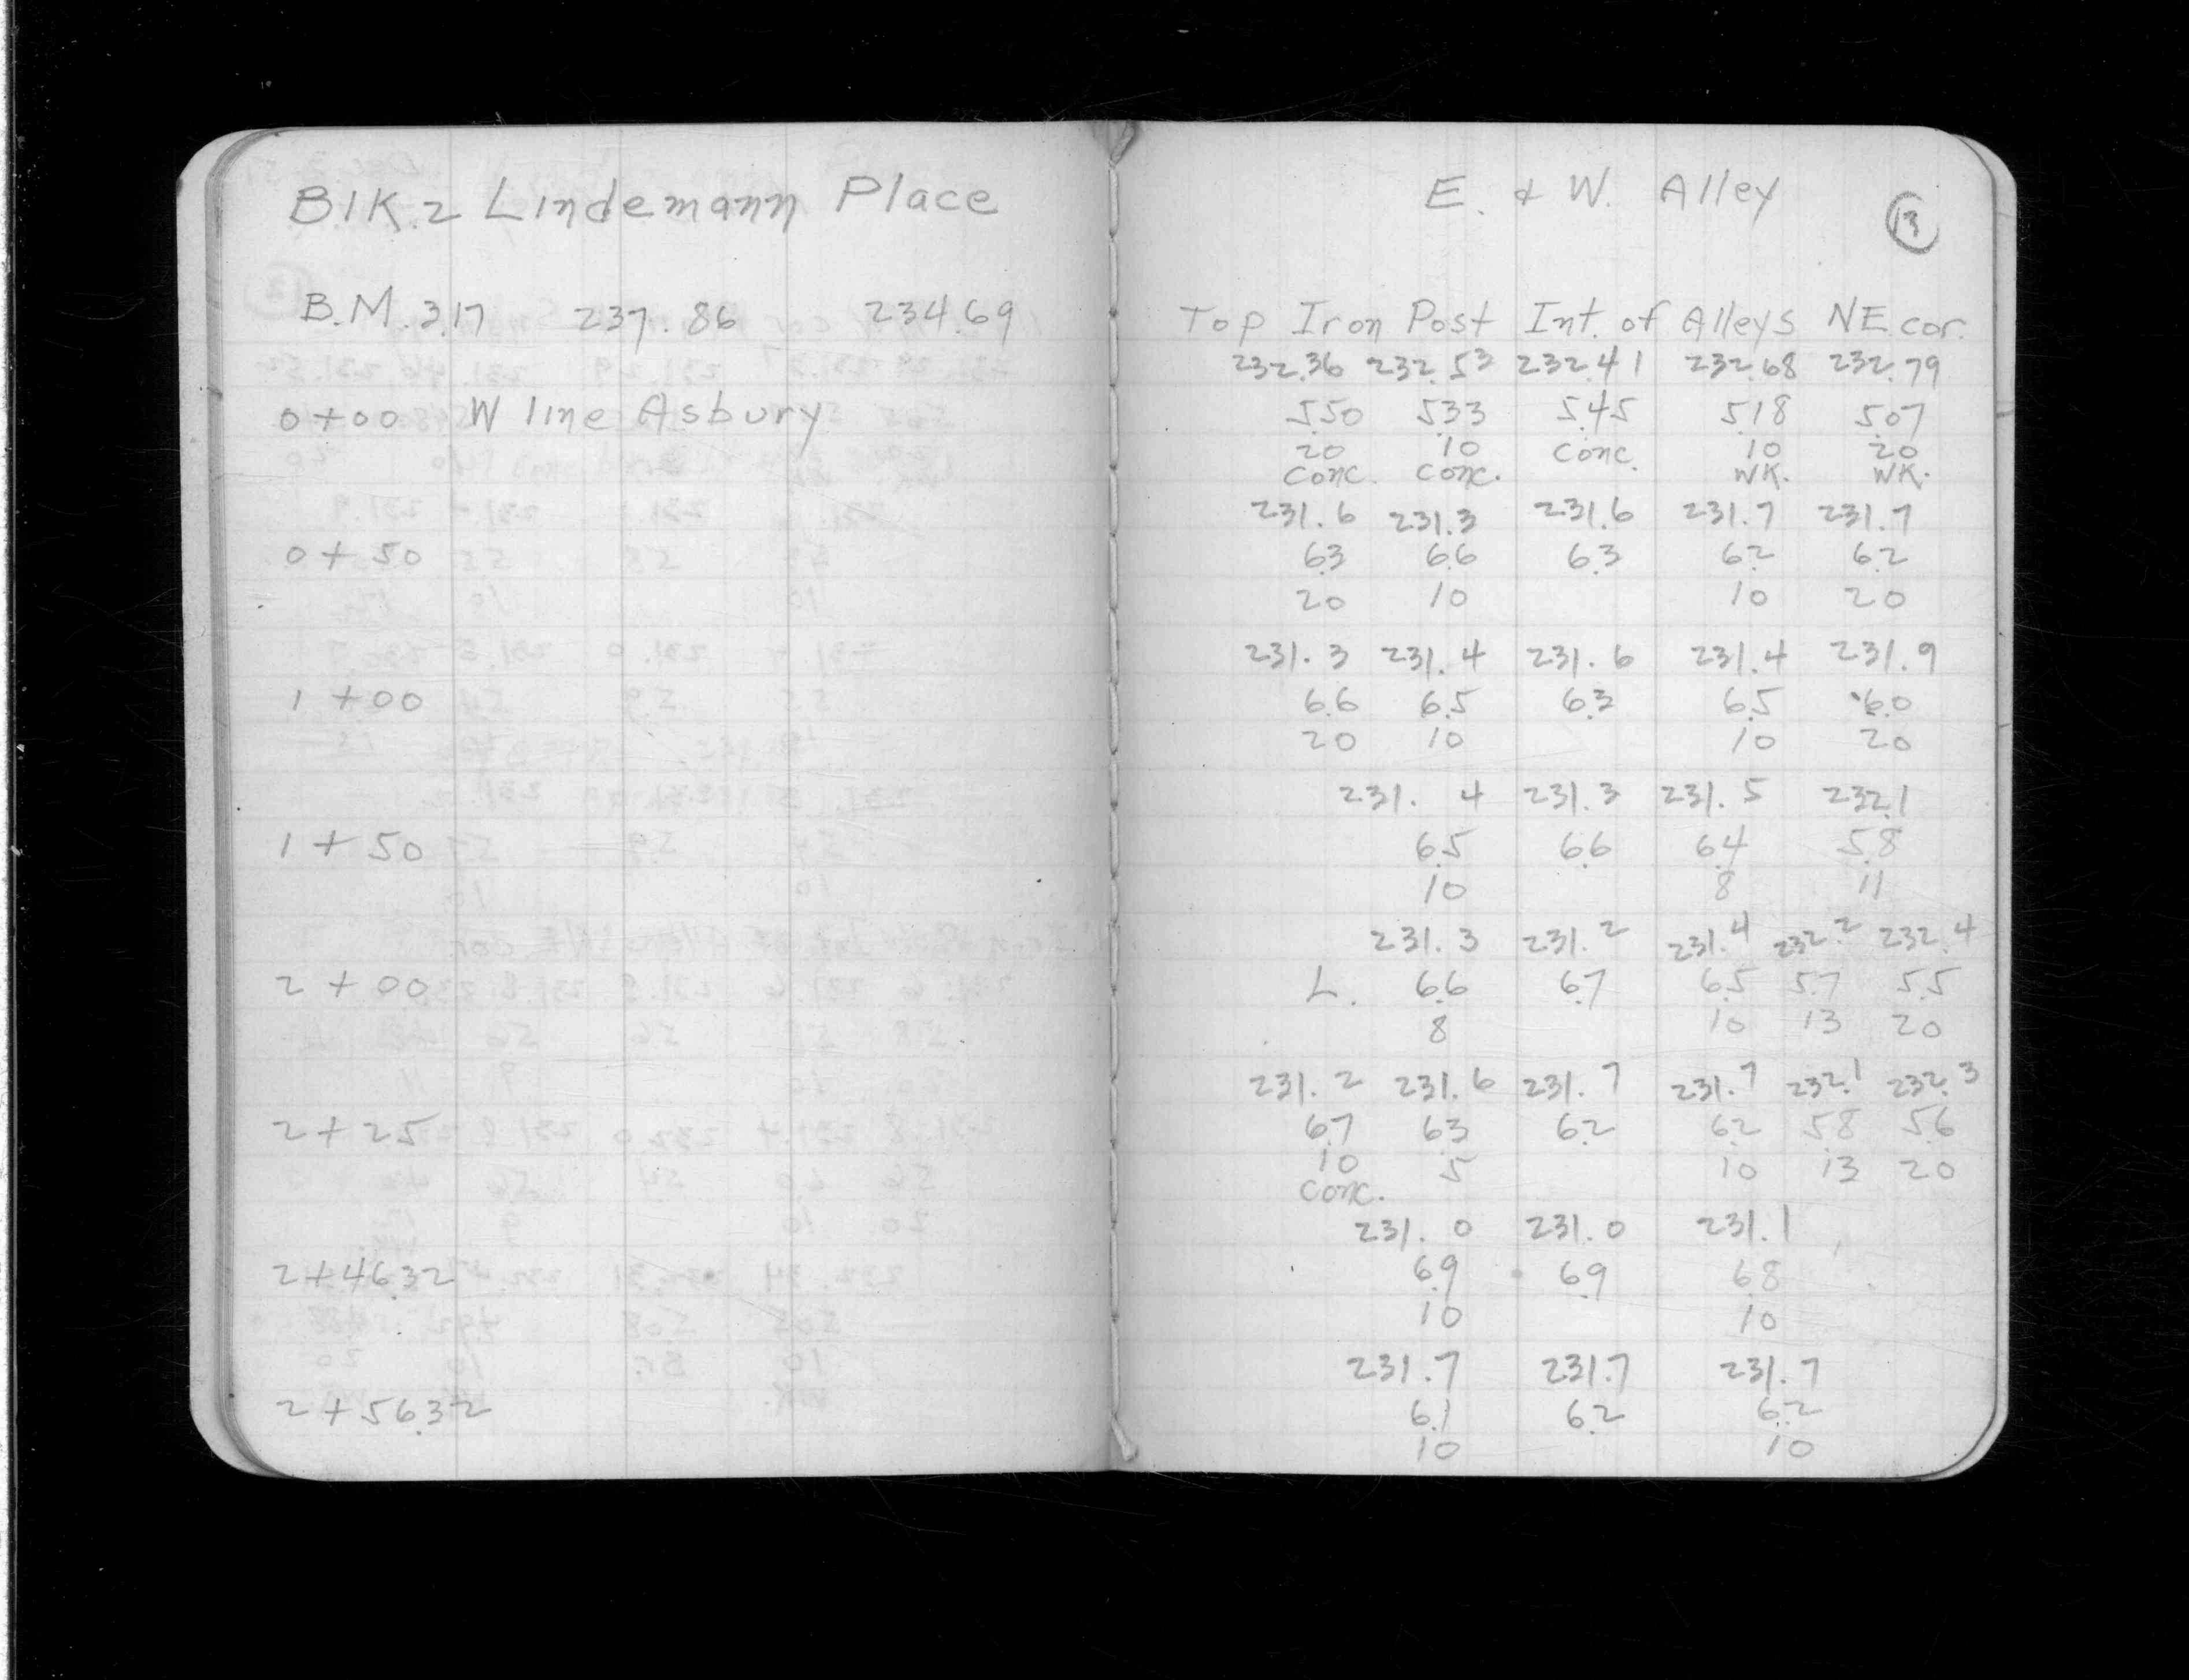 Blk. 2 Lindemann Place
B.M. 3.17 237.86 234.69
0+00 W line Asbury
0+50
1+00
1+50
2+00
2+25
2+46.32
2+56.32
E. & W. Alley
13
Top Iron Post Int. of Alleys NE cor.
232.36 232.53 232.41 232.68 232.79
5.50 5.33 5.45 5.18 5.07
20 10 Conc. 10 20
Conc. Conc. WK. WK.
231.6 231.3 231.6 231.7 231.7
6.3 6.6 6.3 6.2 6.2
20 10 10 20
231.3 231.4 231.6 231.4 231.9
6.6 6.5 6.3 6.5 6.0
20 10 10 20
231.4 231.3 231.5 232.1
6.5 6.6 6.4 5.8
10 8 11
231.3 231.2 231.4 232.2 232.4
L. 6.6 6.7 6.5 5.7 5.5
8 10 13 20
231.2 231.6 231.7 231.7 232.1 232.3
6.7 6.3 6.2 6.2 5.8 5.6
10 5 10 13 20
Conc.
231.0 231.0 231.1
6.9 6.9 6.8
10 10
231.7 231.7 231.7
6.1 6.2 6.2
10 10